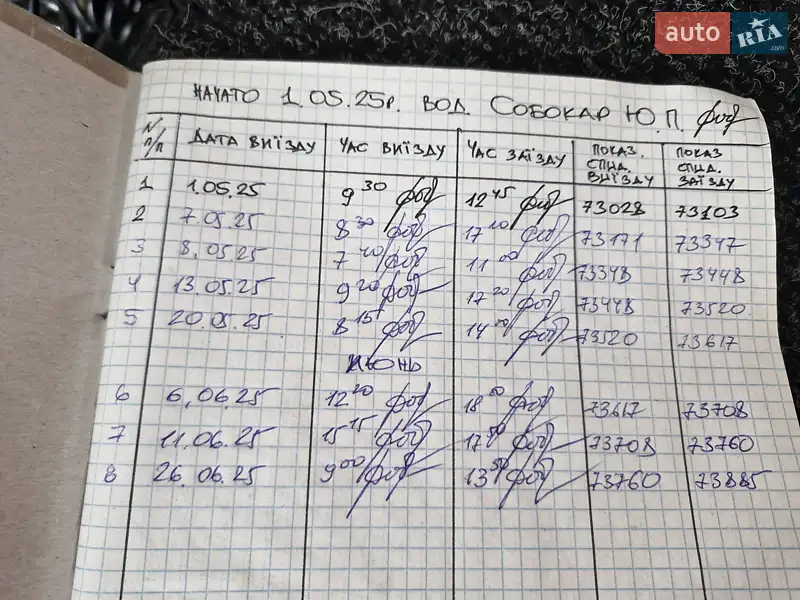 auto RIA .com
НАЧАТО 1.05.25р. ВОД. СОБОКАР Ю.П.
N/П/П ДАТА ВИЇЗДУ ЧАС ВИЇЗДУ ЧАС ЗАЇЗДУ ПОКАЗ. СПИД. ВИЇЗДУ ПОКАЗ СПИД. ЗАЇЗДУ
1 1.05.25 9 30 12 45 73028 73103
2 7.05.25 8 30 17 10 73171 73347
3 8.05.25 7 40 11 00 73348 73448
4 13.05.25 9 20 17 20 73448 73520
5 20.05.25 8 15 14 00 73520 73617
ИЮНЬ
6 6.06.25 12 20 18 00 73617 73708
7 11.06.25 15 15 17 50 73708 73760
8 26.06.25 9 00 13 50 73760 73885